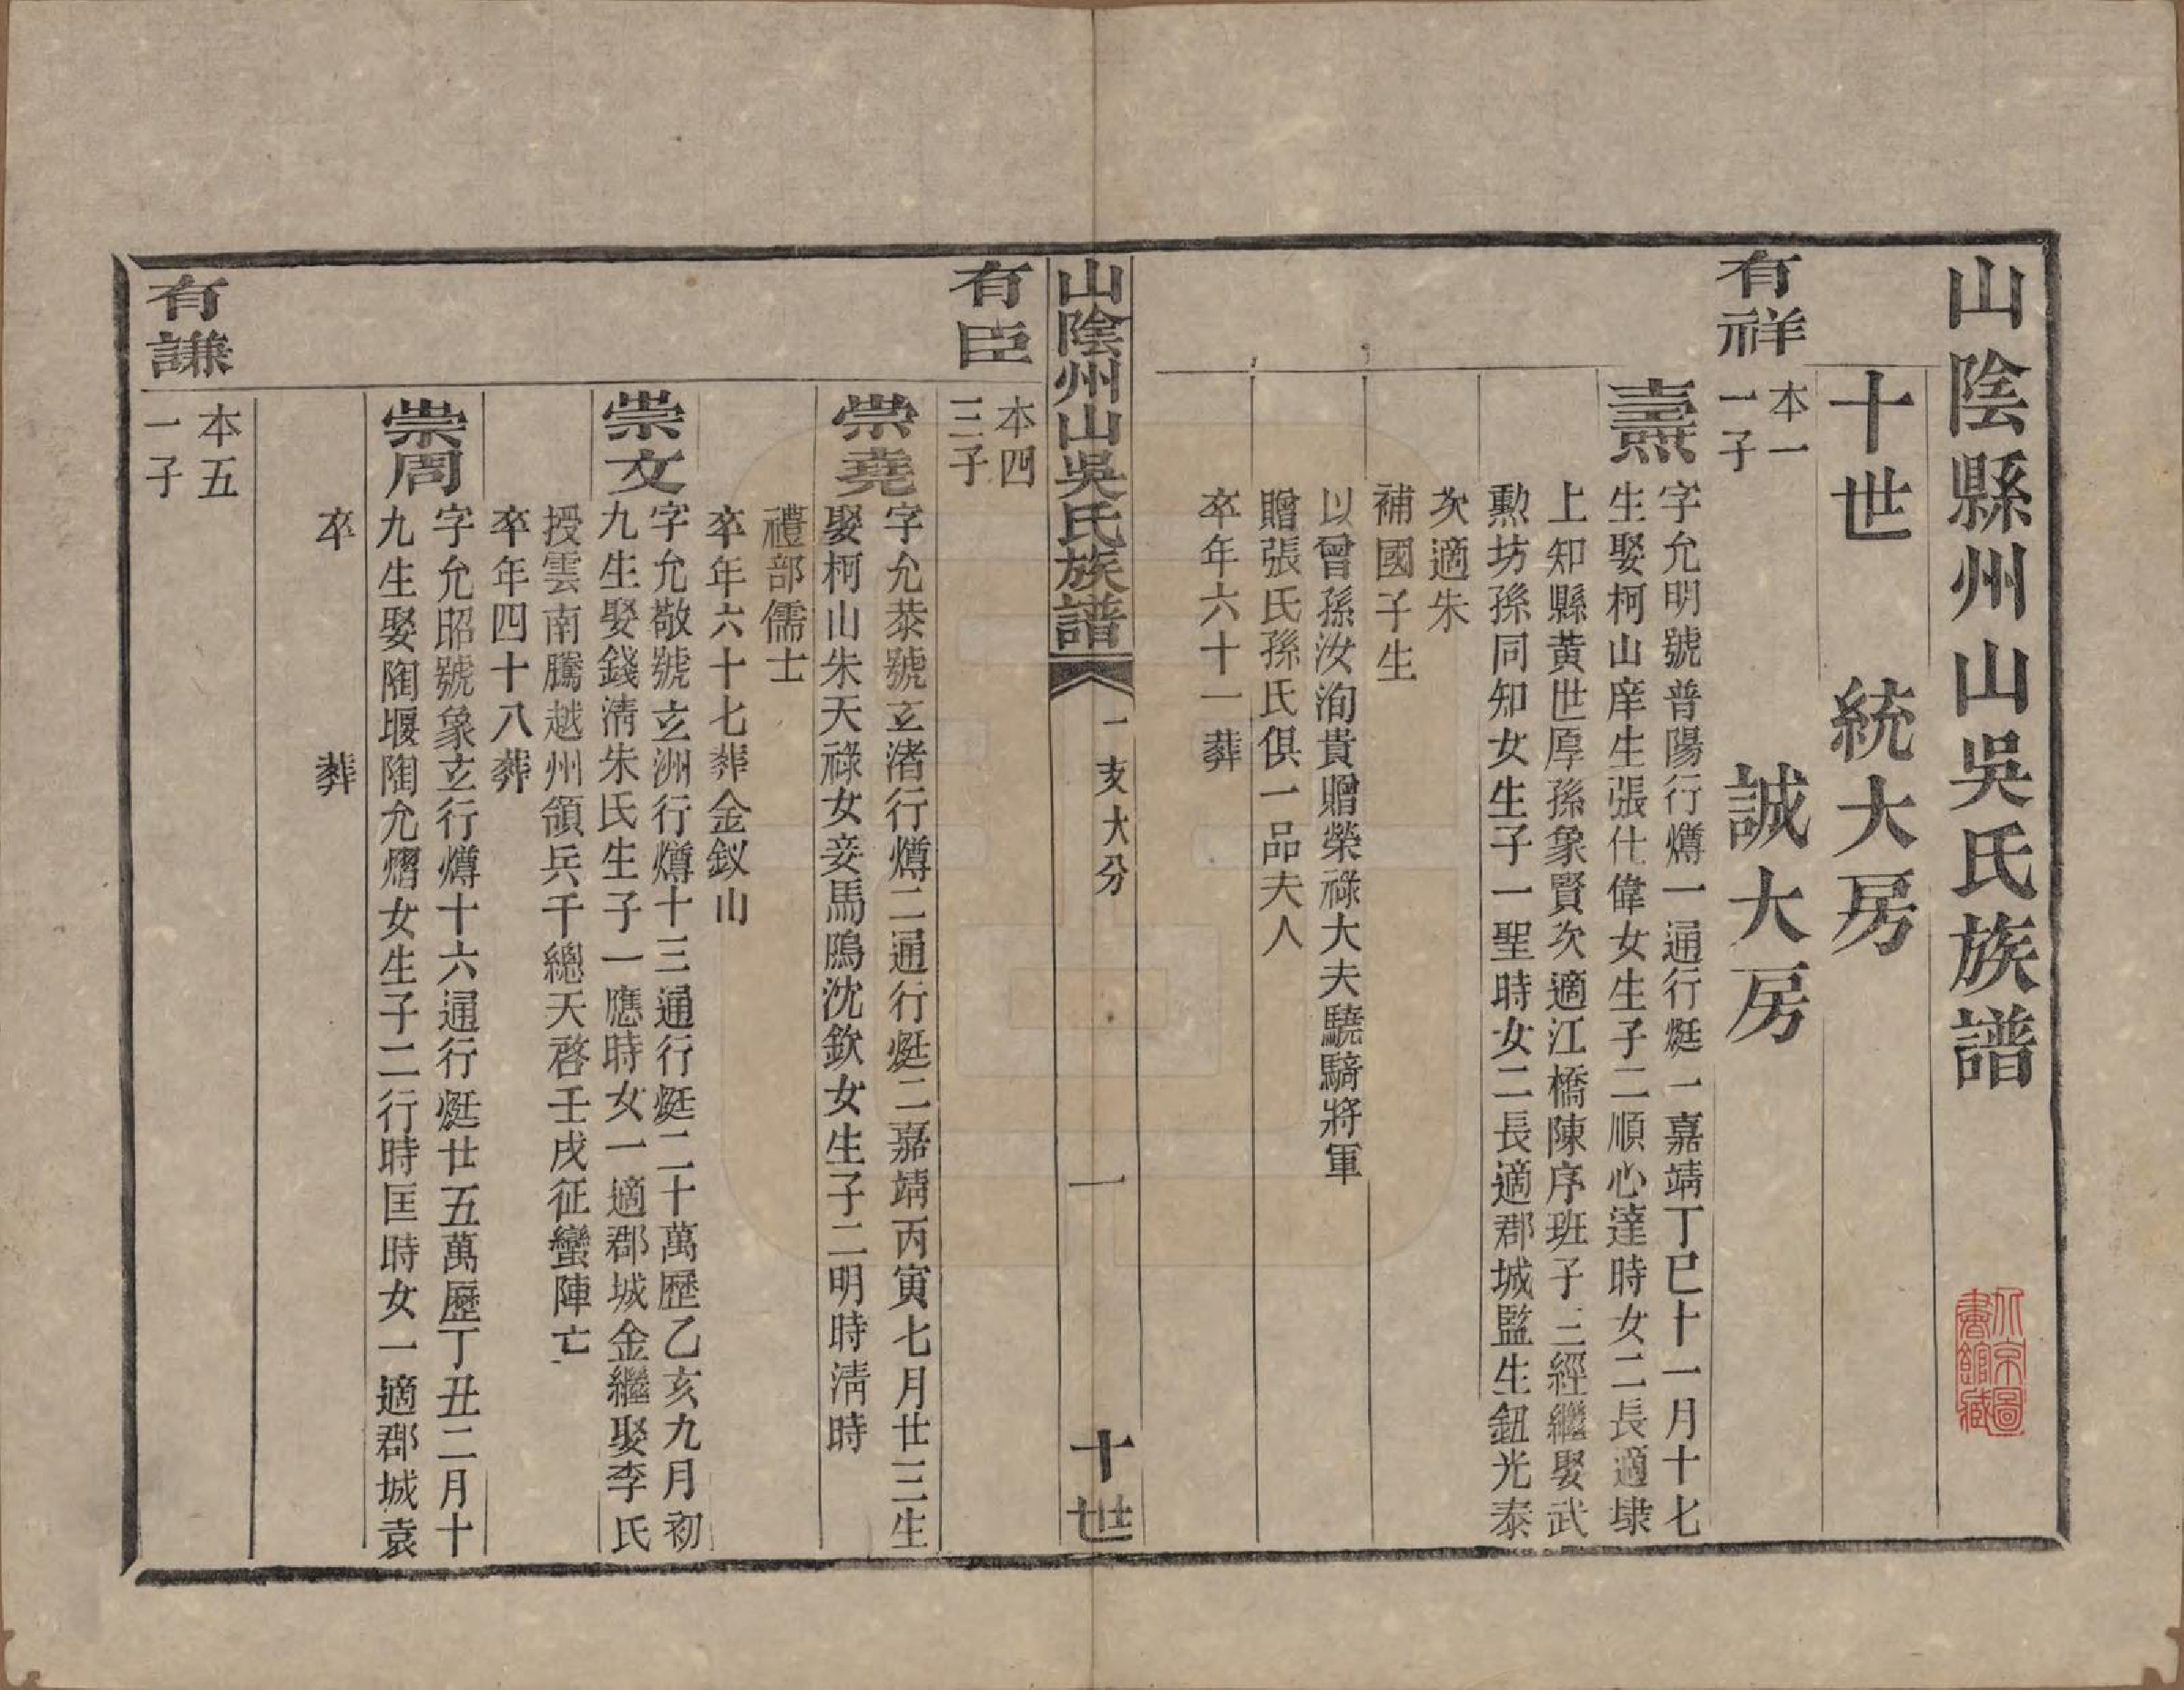 山陰縣州山吳氏族譜
十世　統大房
誠大房
有祥　本一
一子
燾　字允明號普陽行燇一通行烶一嘉靖丁巳十一月十七
生娶柯山庠生張仕偉女生子二順心達時女二長適埭
上知縣黃世厚孫象賢次適江橋陳序班子三經繼娶武
勲坊孫同知女生子一聖時女二長適郡城監生鈕光泰
次適朱
補國子生
以曾孫汝洵貴贈榮祿大夫驍騎將軍
贈張氏孫氏俱一品夫人
卒年六十一葬
山陰州山吳氏族譜　一支大分　一　十世
有臣　本四
三子
崇堯　字允恭號玄渚行燇二通行烶二嘉靖丙寅七月廿三生
娶柯山朱天祿女妾馬隝沈欽女生子二明時淸時
禮部儒士
卒年六十七葬金釵山
崇文　字允敬號玄洲行燇十三通行烶二十萬歷乙亥九月初
九生娶錢淸朱氏生子一應時女一適郡城金繼娶李氏
授雲南騰越州領兵千總天啓壬戌征蠻陣亡
卒年四十八葬
崇周　字允昭號象玄行燇十六通行烶廿五萬歷丁丑二月十
九生娶陶堰陶允熠女生子二行時匡時女一適郡城袁
卒　葬
有謙　本五
一子
北京圖
書館藏